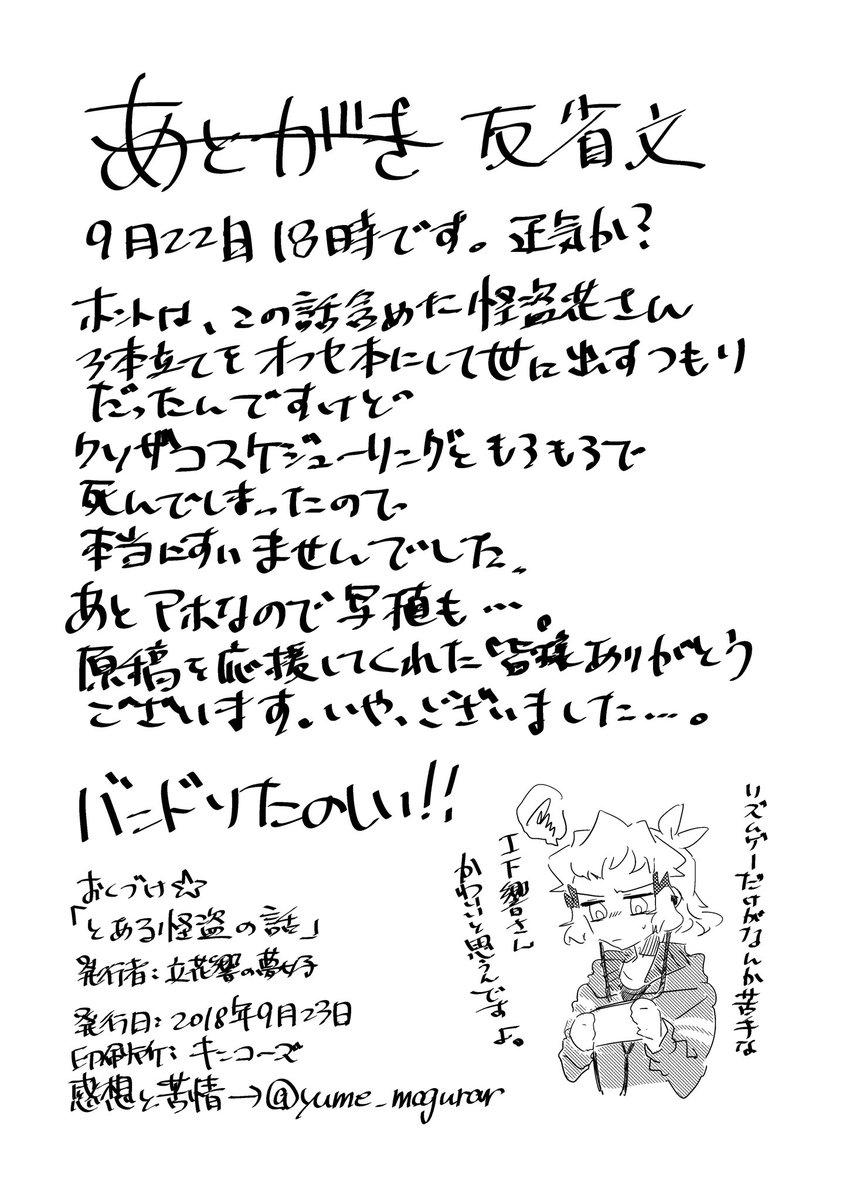 あとがき 反省文
9月22日18時です。正気か?
ホントは、この話含めた怪盗花さん
3本立てをオフセ本にして世に出すつもり
だったんですけど
クソザコスケジューリングともろもろで
死んでしまったので
本当にすいませんでした。
あとアホなので写植も…。
原稿を応援してくれた皆様ありがとう
ございます。いや、ございました…。
バンドリたのしい!!
リズムゲーだけがなんか苦手な
工下響さん
かわいいと思うんですよ。
おくづけ☆
「とある怪盗の話」
発行者:立花響の夢女子
発行日:2018年9月23日
印刷所:キンコーズ
感想と苦情→@yume_mogurar